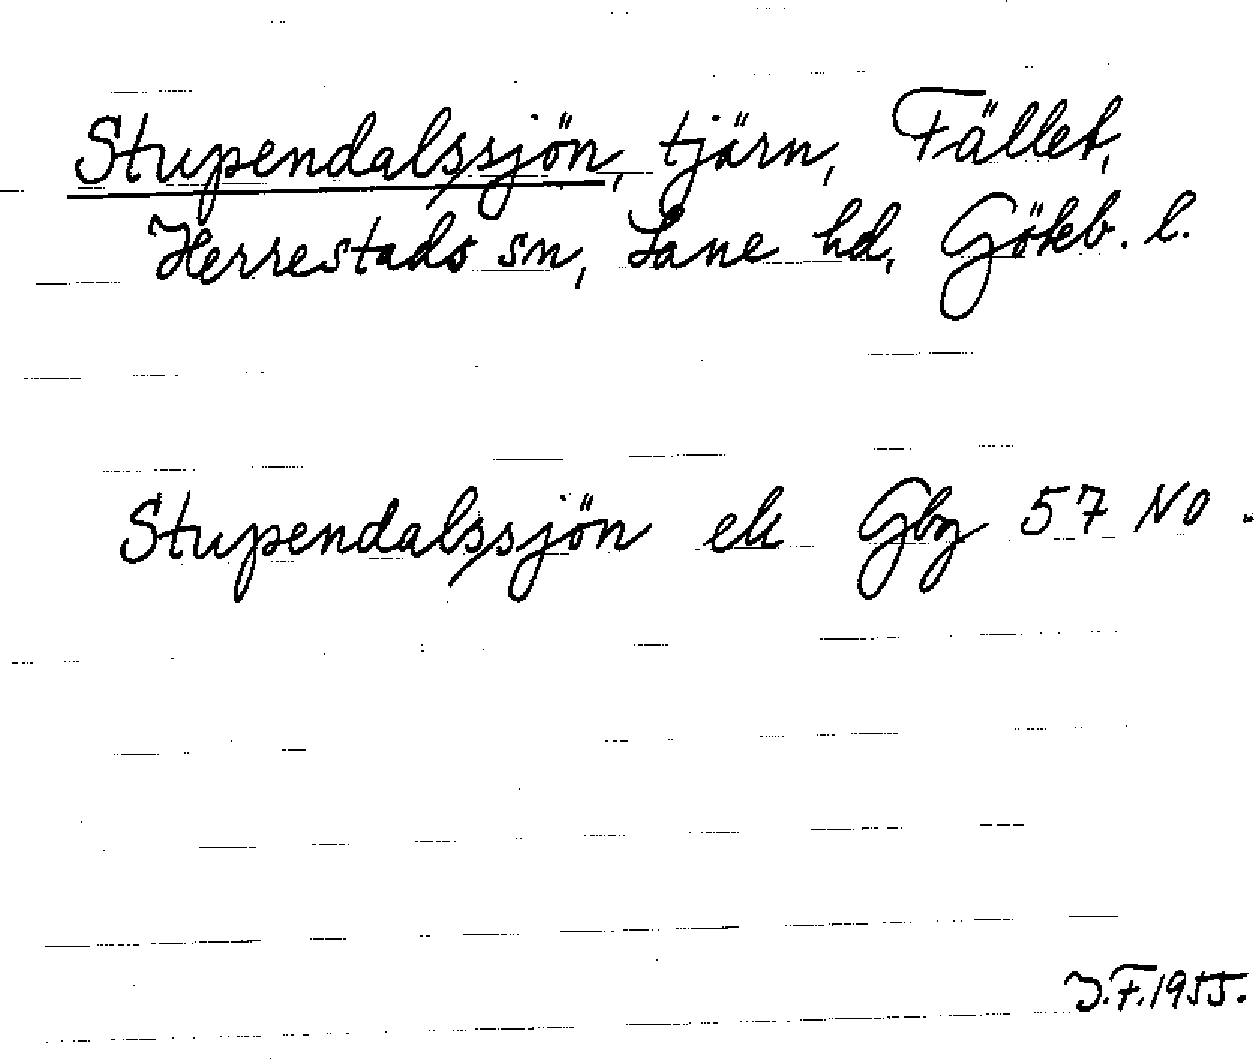 Stupendalssjön, tjärn, Fället,
Herrestads sn, Lane hd, Göteb. l.
Stupendalssjön ek Gbg 57 NO.
J.F. 1955.